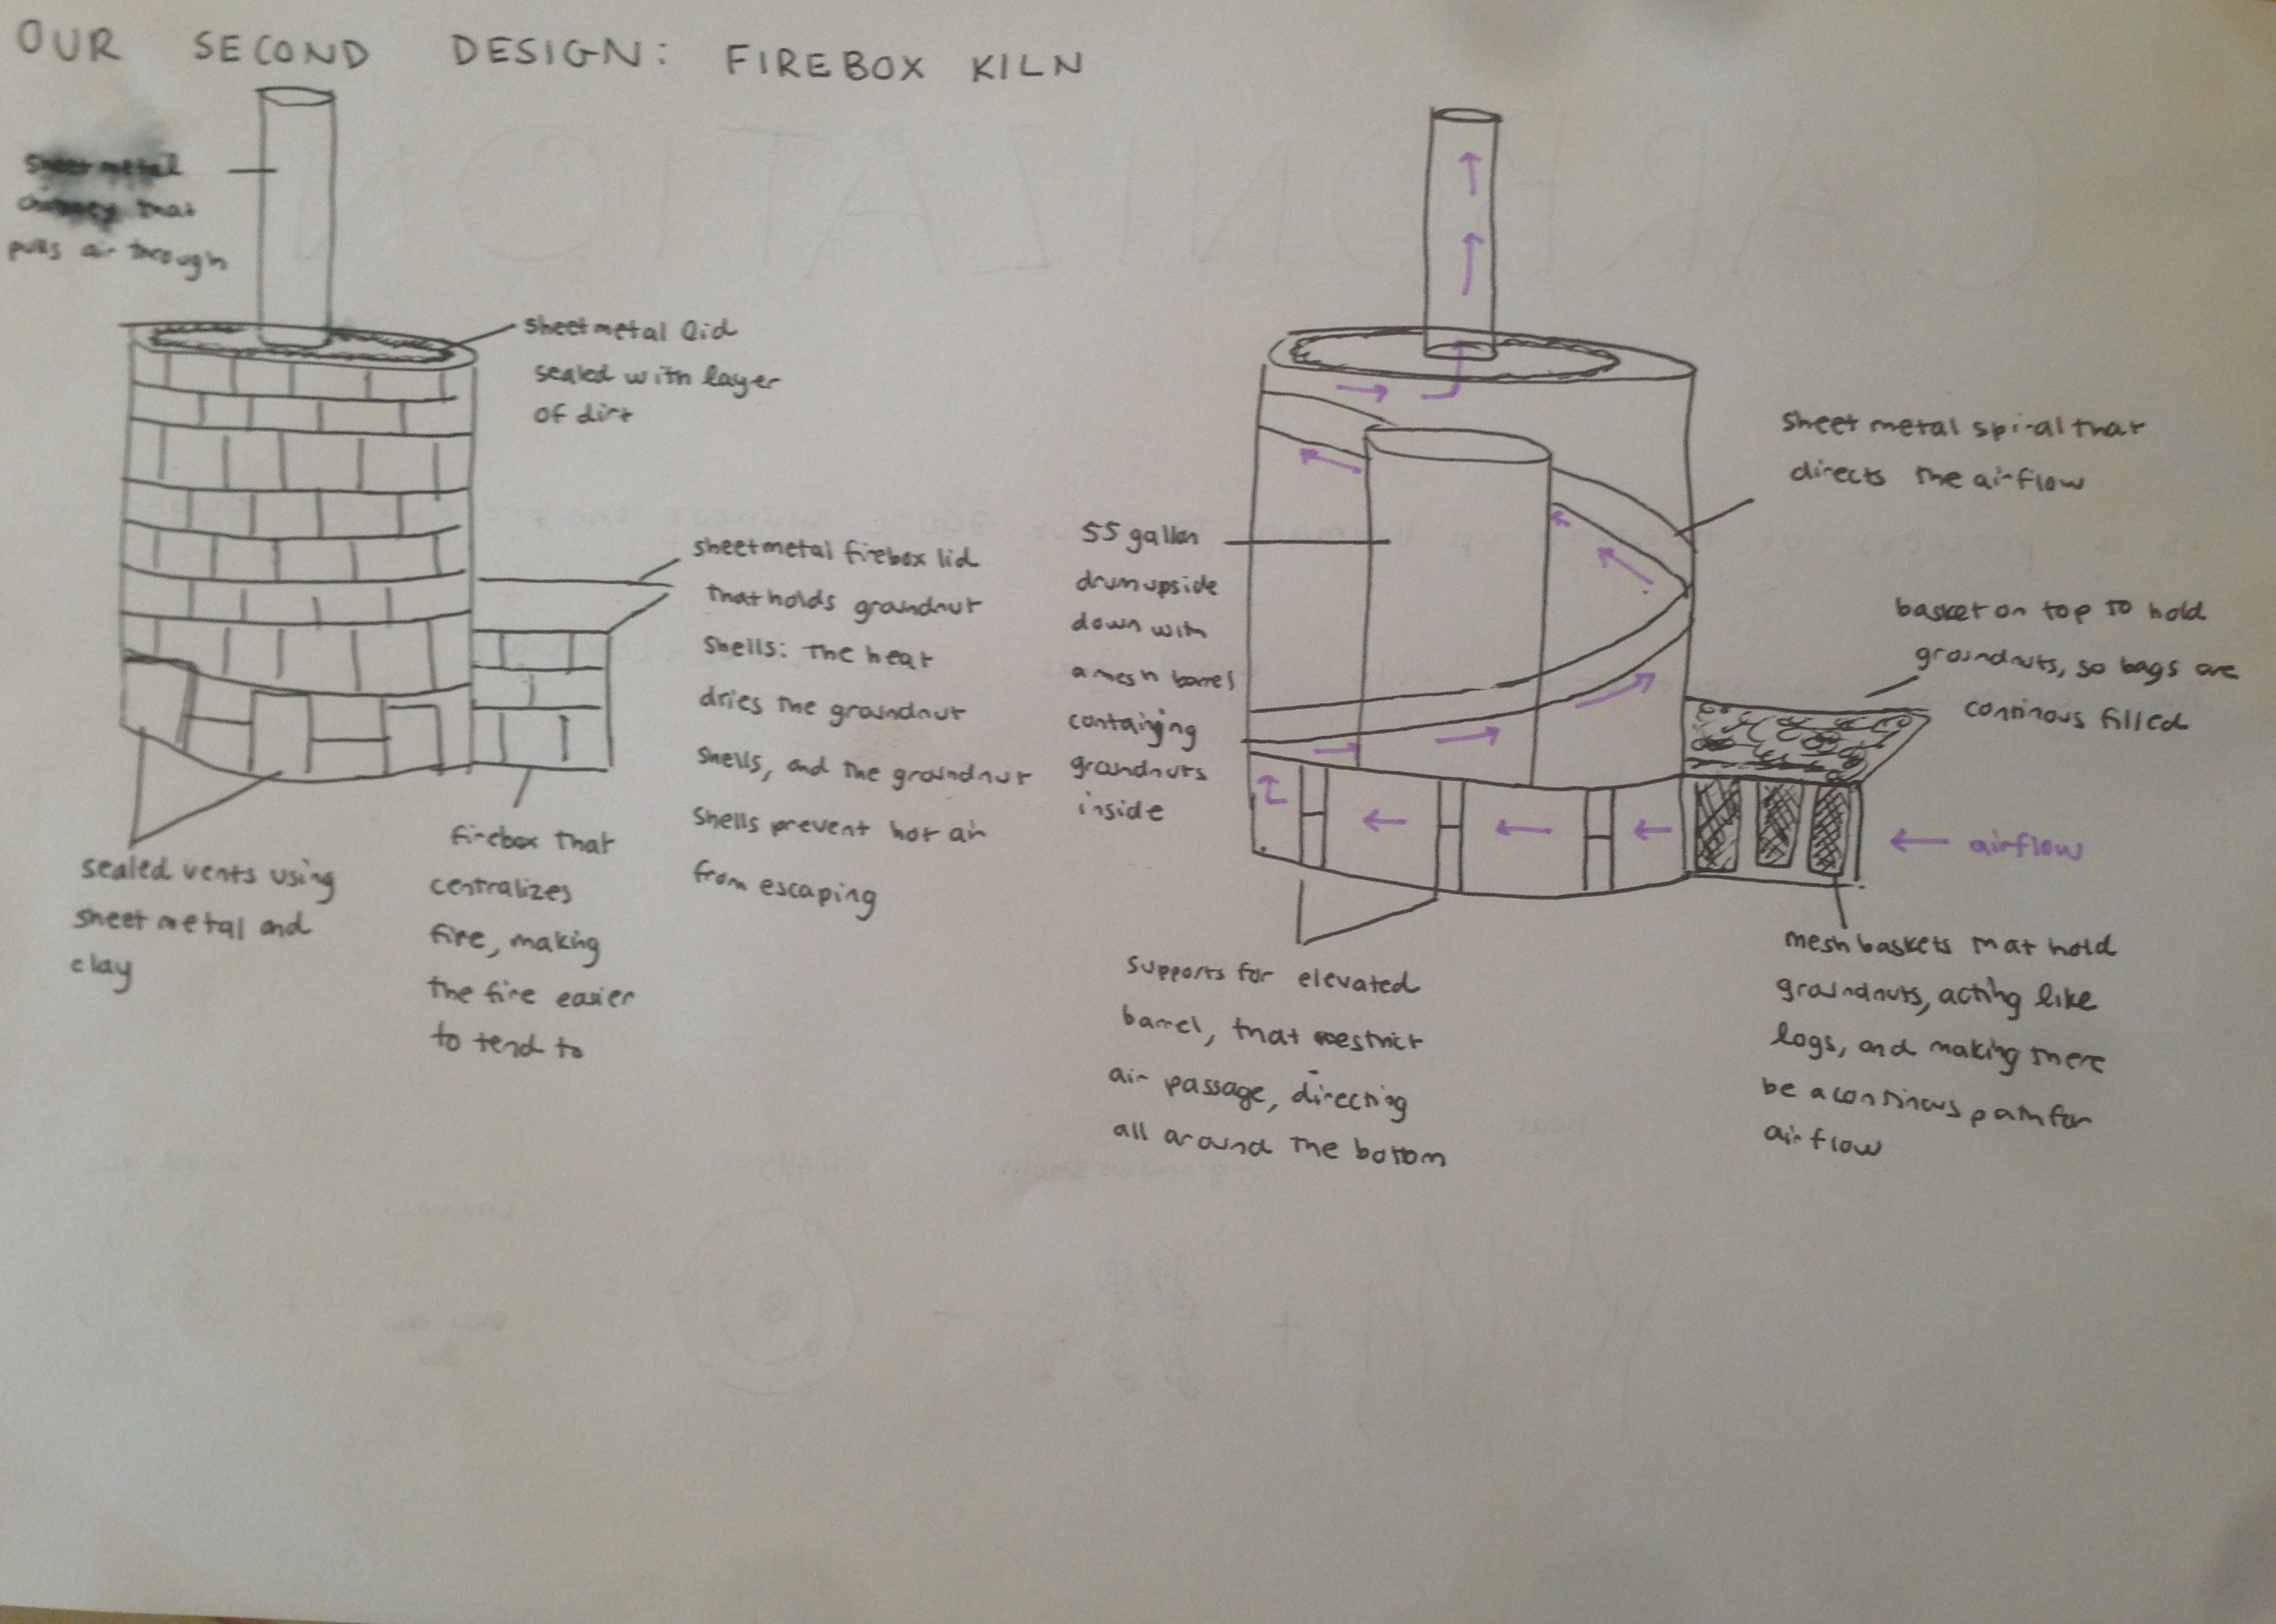 OUR SECOND DESIGN: FIREBOX KILN
sheet metal
chimney that
pulls air through
sheetmetal lid
sealed with layer
of dirt
sheetmetal firebox lid
that holds groundnut
shells: The heat
dries the groundnut
shells, and the groundnut
shells prevent hot air
from escaping
sealed vents using
sheet metal and
clay
firebox that
centralizes
fire, making
the fire easier
to tend to
55 gallon
drum upside
down with
a mesh barrel
containing
groundnuts
inside
sheet metal spiral that
directs the airflow
basket on top to hold
groundnuts, so bags are
continous filled
airflow
supports for elevated
barrel, that restrict
air passage, directing
all around the bottom
mesh baskets that hold
groundnuts, acting like
logs, and making there
be a continous path for
airflow
CARBONIZATION